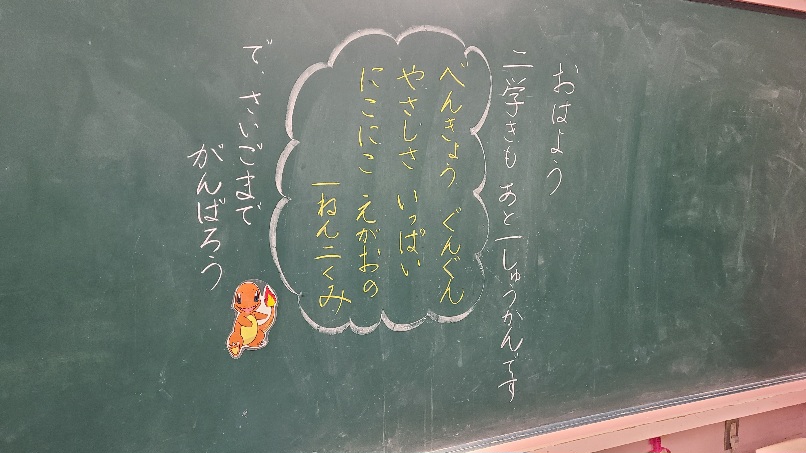 おはよう
二学きも あと一しゅうかんです
べんきょう ぐんぐん
やさしさ いっぱい
にこにこ えがおの
一ねん二くみ
で、さいごまで
がんばろう